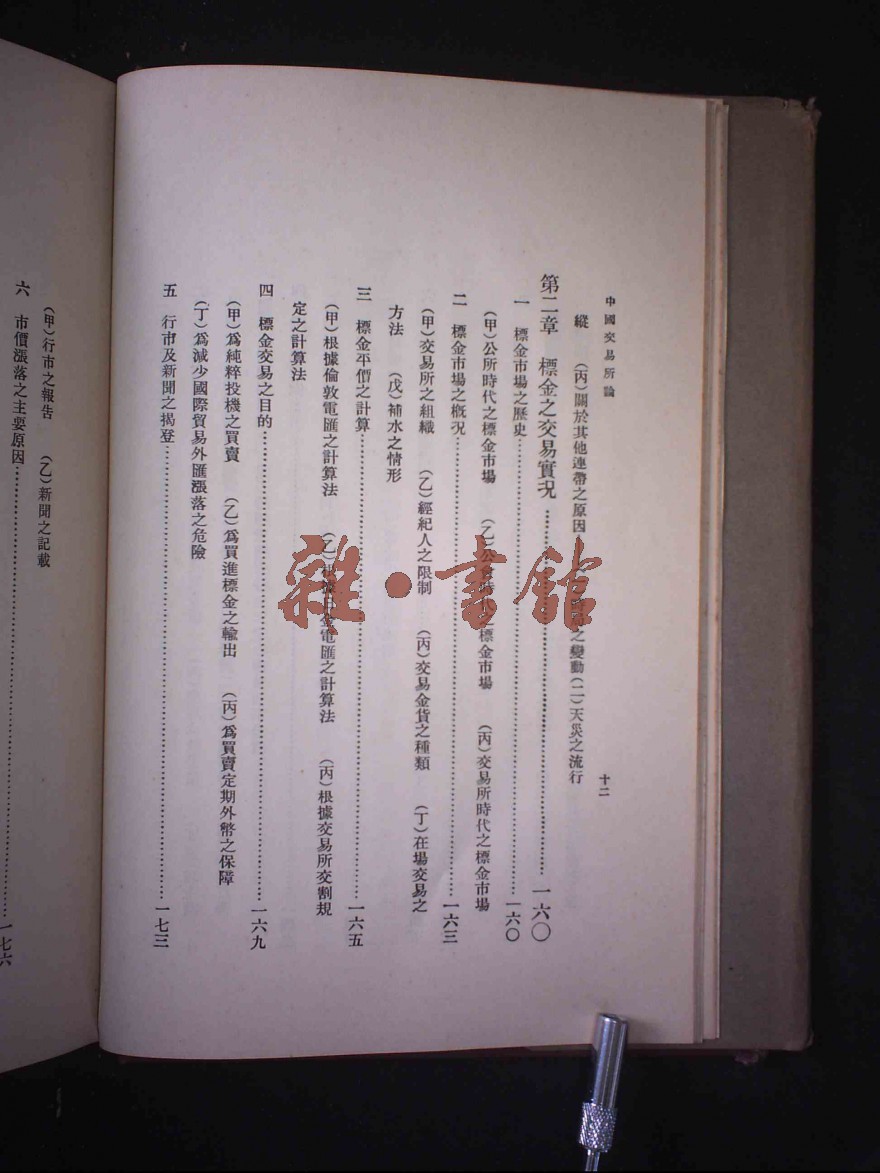 中國交易所論
十二
縱 (丙)關於其他連帶之原因 之變動(二)天災之流行
第二章 標金之交易實況………一六〇
一 標金市場之歷史………一六〇
(甲)公所時代之標金市場 (乙)公會時代之標金市場 (丙)交易所時代之標金市場
二 標金市場之槪況………一六三
(甲)交易所之組織 (乙)經紀人之限制 (丙)交易金貨之種類 (丁)在場交易之
方法 (戊)補水之情形
三 標金平價之計算………一六五
(甲)根據倫敦電匯之計算法 (乙)根據日金電匯之計算法 (丙)根據交易所交割規
定之計算法
四 標金交易之目的………一六九
(甲)爲純粹投機之買賣 (乙)爲買進標金之輸出 (丙)爲買賣定期外幣之保障
(丁)爲減少國際貿易外匯漲落之危險
五 行市及新聞之揭登………一七三
(甲)行市之報告 (乙)新聞之記載
六 市價漲落之主要原因………一七六
雜·書館